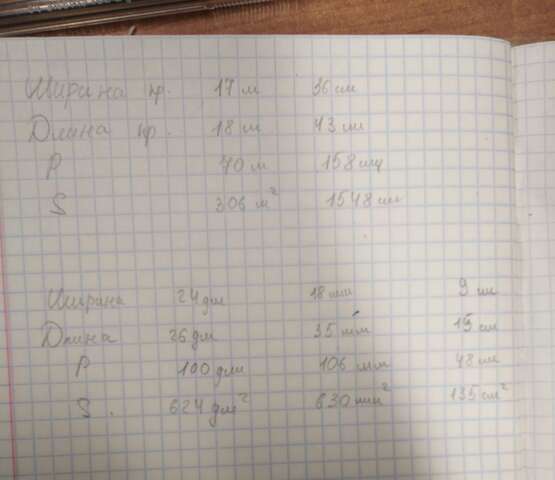 Ширина пр. 17 м 36 см
Длина пр. 18 м 43 см
P 70 м 158 см
S 306 м² 1548 см
Ширина 24 дм 18 мм 9 см
Длина 26 дм 35 мм 15 см
P 100 дм 106 мм 48 см
S. 624 дм² 630 мм² 135 см²